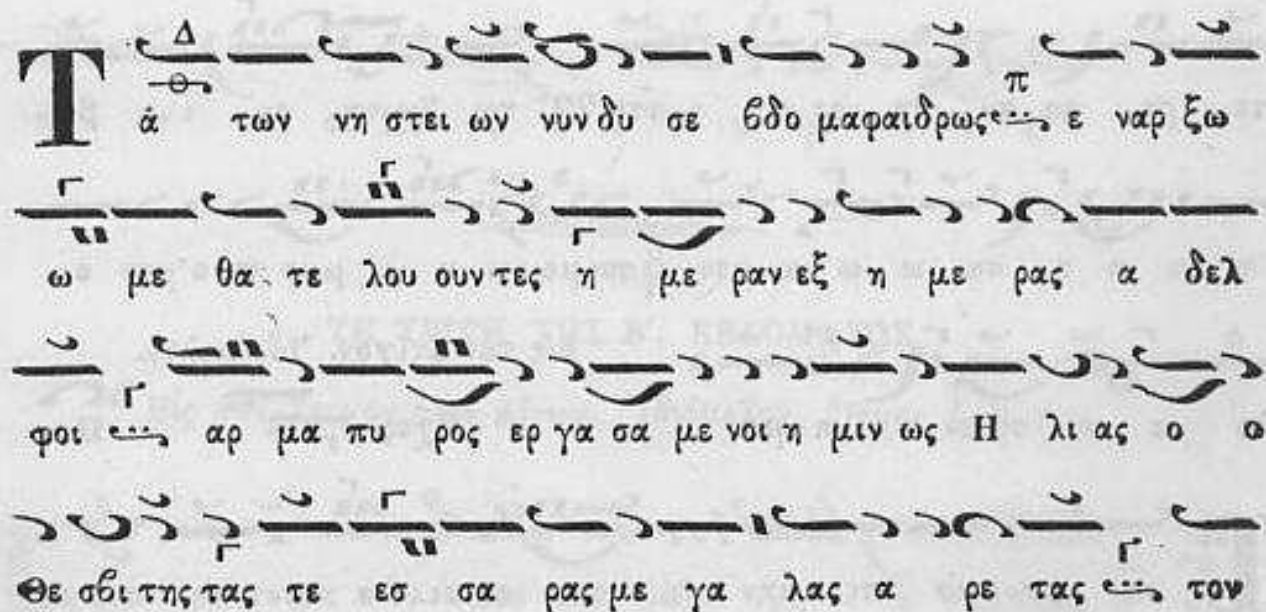 Τ ά των νη στει ων νυν δυ σε βδο μα φαιδρως ε ναρ ξω
ω με θα τε λου ουν τες η με ραν εξ η με ρας α δελ
φοι αρ μα πυ ρος ερ γα σα με νοι η μιν ως Η λι ας ο ο
Θε σβι της τας τε εσ σα ρας με γα λας α ρε τας τον